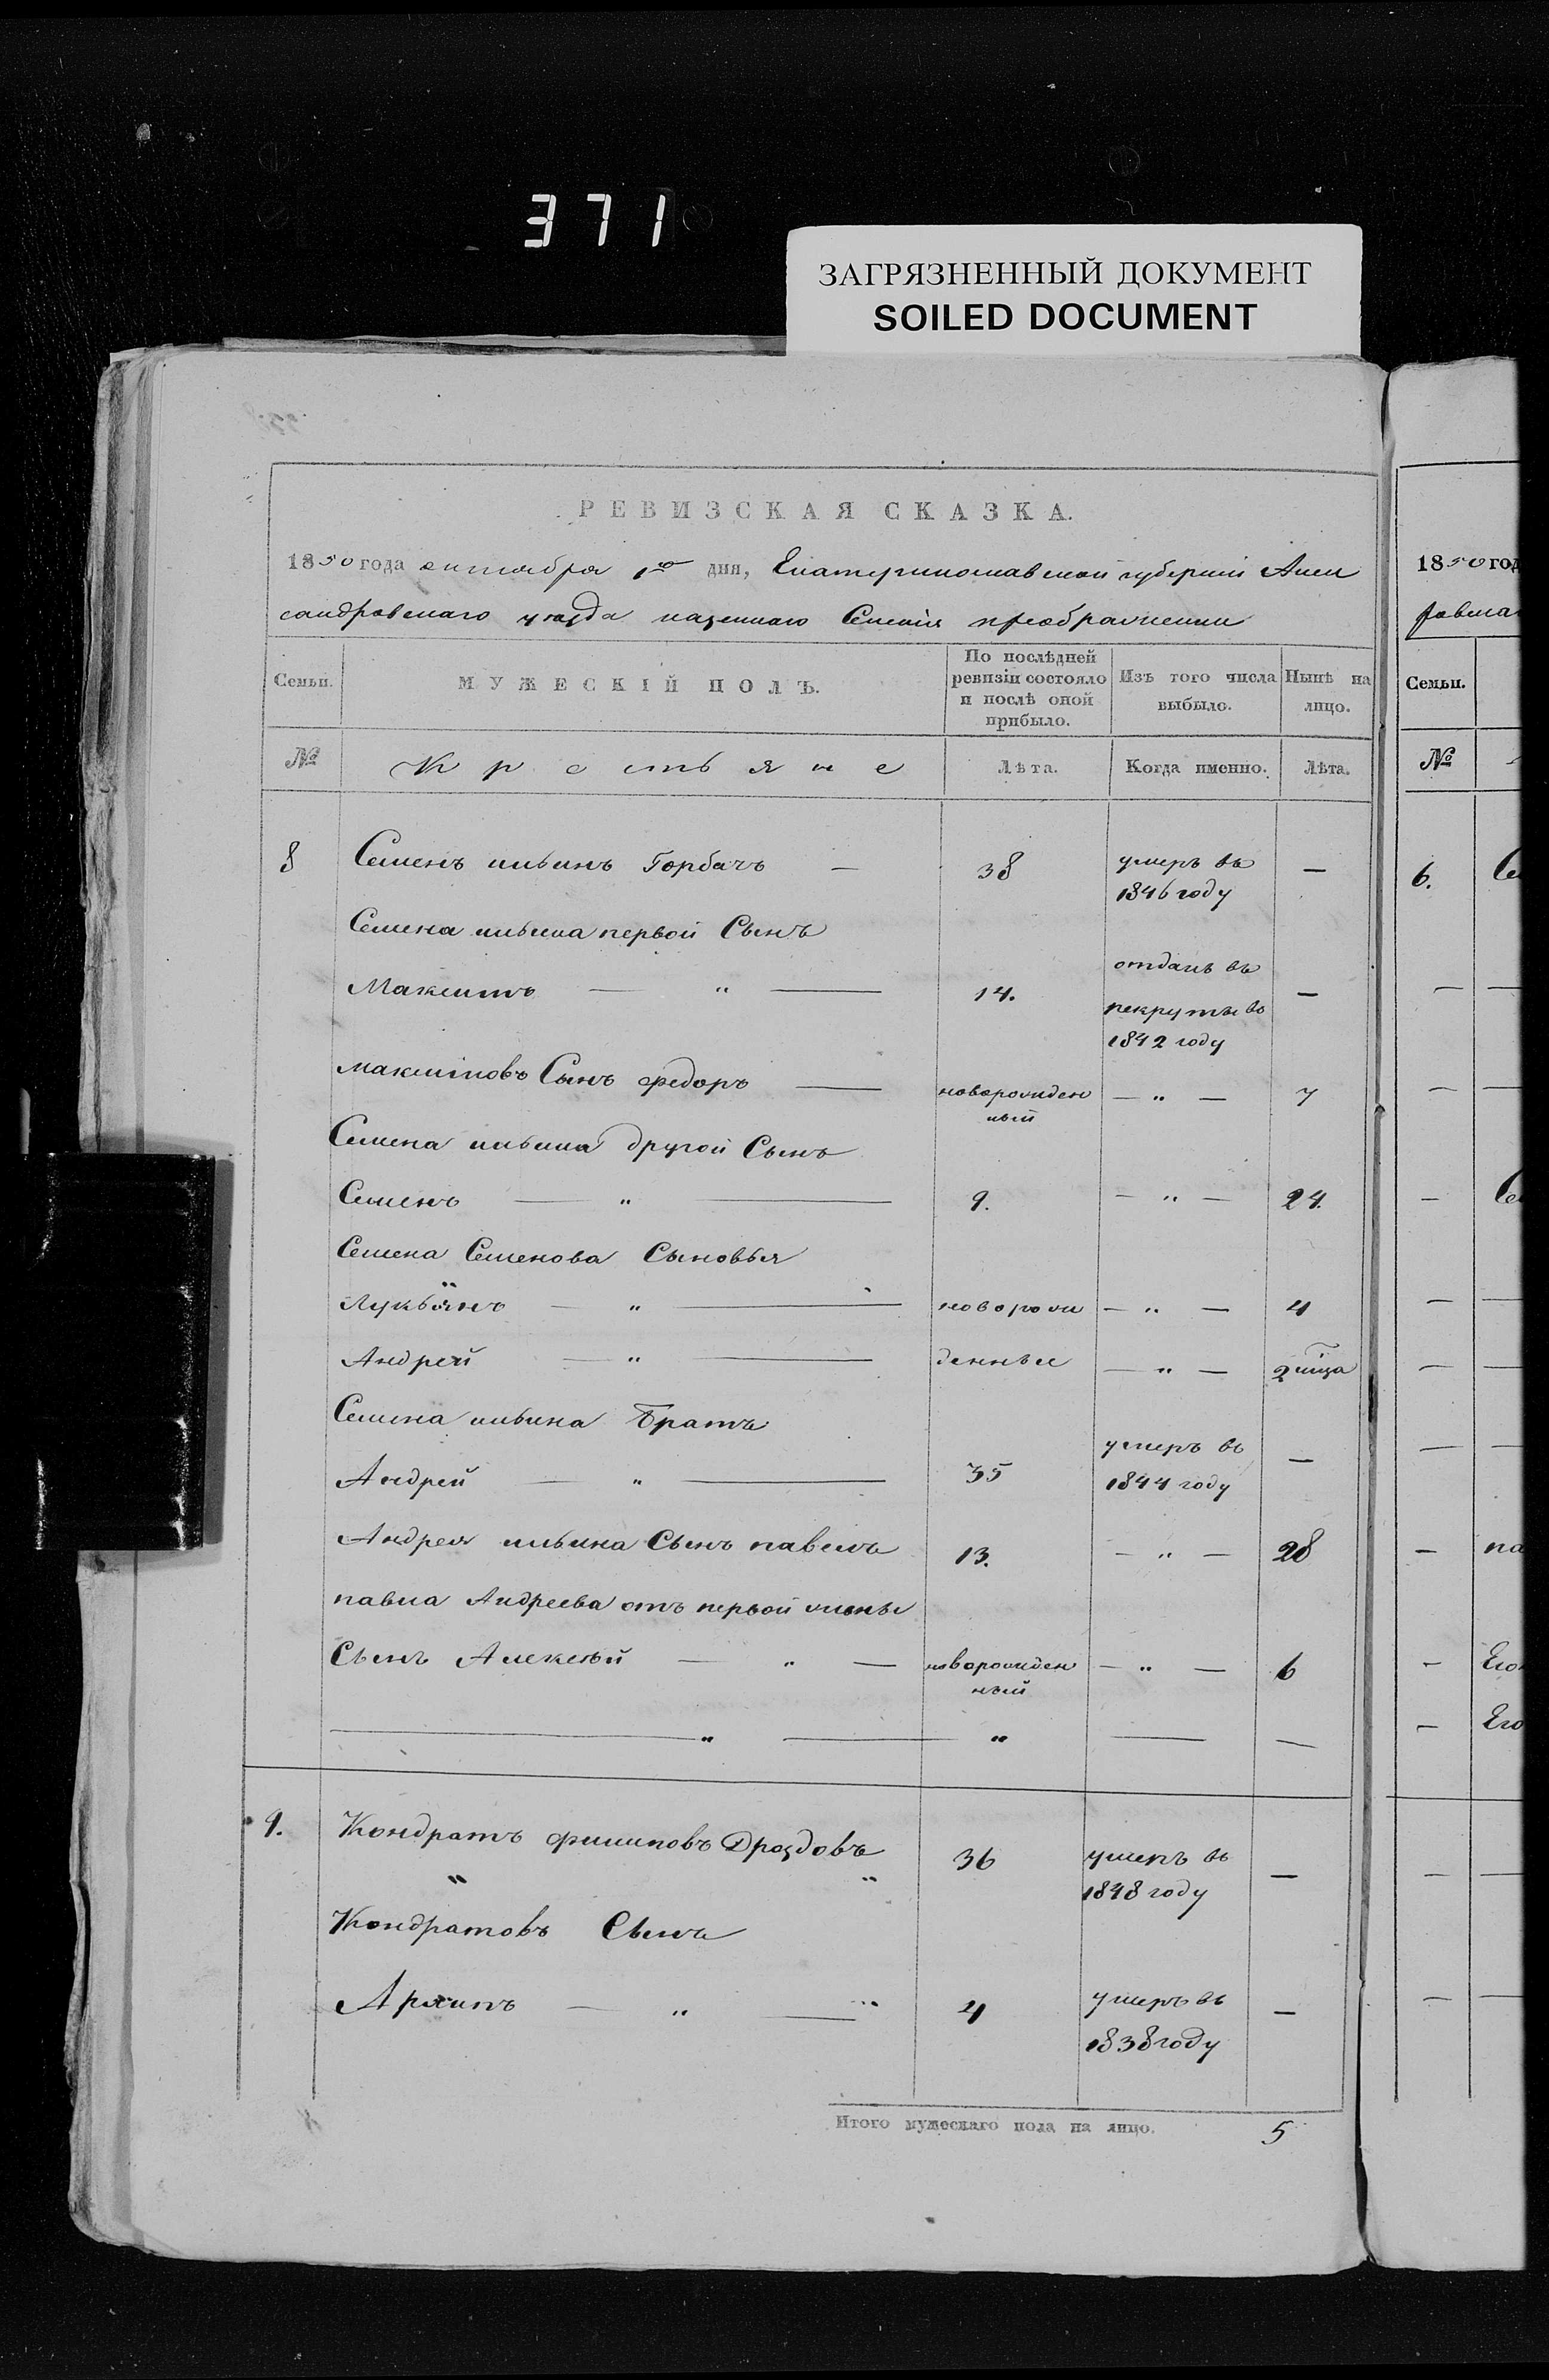 371
ЗАГРЯЗНЕННЫЙ ДОКУМЕНТ
SOILED DOCUMENT
РЕВИЗСКАЯ СКАЗКА.
1850 года октября 1го дня, Екатеринославской губернии Алек
сандровского уезда казенного Селенія преображенки
Семьи.
МУЖЕСКІЙ ПОЛЪ.
По послѣдней ревизіи состояло и послѣ оной прибыло.
Изъ того числа выбыло.
Нынѣ на лицо.
№
Крестьяне
Лѣта.
Когда именно.
Лѣта.
8 Семенъ ильинъ Горбачъ — 38 умеръ въ 1846 году —
Семена ильина первой Сынъ
Максимъ — " — 14. отданъ въ рекруты въ 1842 году —
максимовъ Сынъ федоръ — новорожден ный — " — 7
Семена ильина другой Сынъ
Семенъ — " — 9. — " — 24.
Семена Семенова Сыновья
Лукьянъ — " — новорож — " — 4
Андрей — " — денные — " — 2 мца
Семена ильина Братъ
Андрей — " — 35 умеръ въ 1844 году —
Андрея ильина Сынъ павелъ 13. — " — 28
павла Андреева отъ первой жены
Сынъ Алексѣй — " — новорожден ный — " — 6
— " — " — —
9. Кондратъ филиповъ Дроздовъ 36 умеръ въ 1848 году —
" "
Кондратовъ Сынъ
Архипъ — " — " 4 умеръ въ 1838 году —
Итого мужескаго пола на лицо. 5
1850 год
Семьи.
№
6.